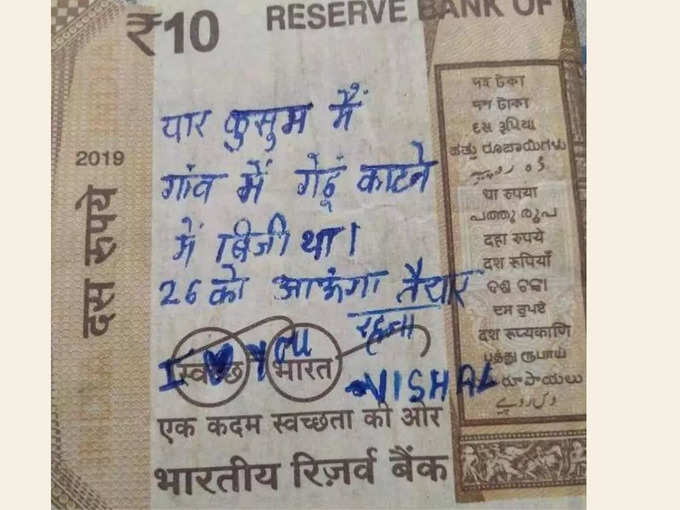 ₹10 RESERVE BANK OF
2019
दस रुपये
यार कुसुम मैं
गांव में गेहूं काटने
में बिजी था।
26 को आऊंगा तैयार
रहना
I ♥ YOU
VISHAL
स्वच्छ भारत
एक कदम स्वच्छता की ओर
भारतीय रिज़र्व बैंक
দহ টকা
দশ টাকা
દસ રૂપિયા
ಹತ್ತು ರೂಪಾಯಿಗಳು
धा रुपया
പത്തു രൂപ
दहा रुपये
दश रूपियाँ
ଦଶ ଟଙ୍କା
ਦਸ ਰੁਪਏ
दश रूप्यकाणि
பத்து ரூபாய்
రూపాయలు